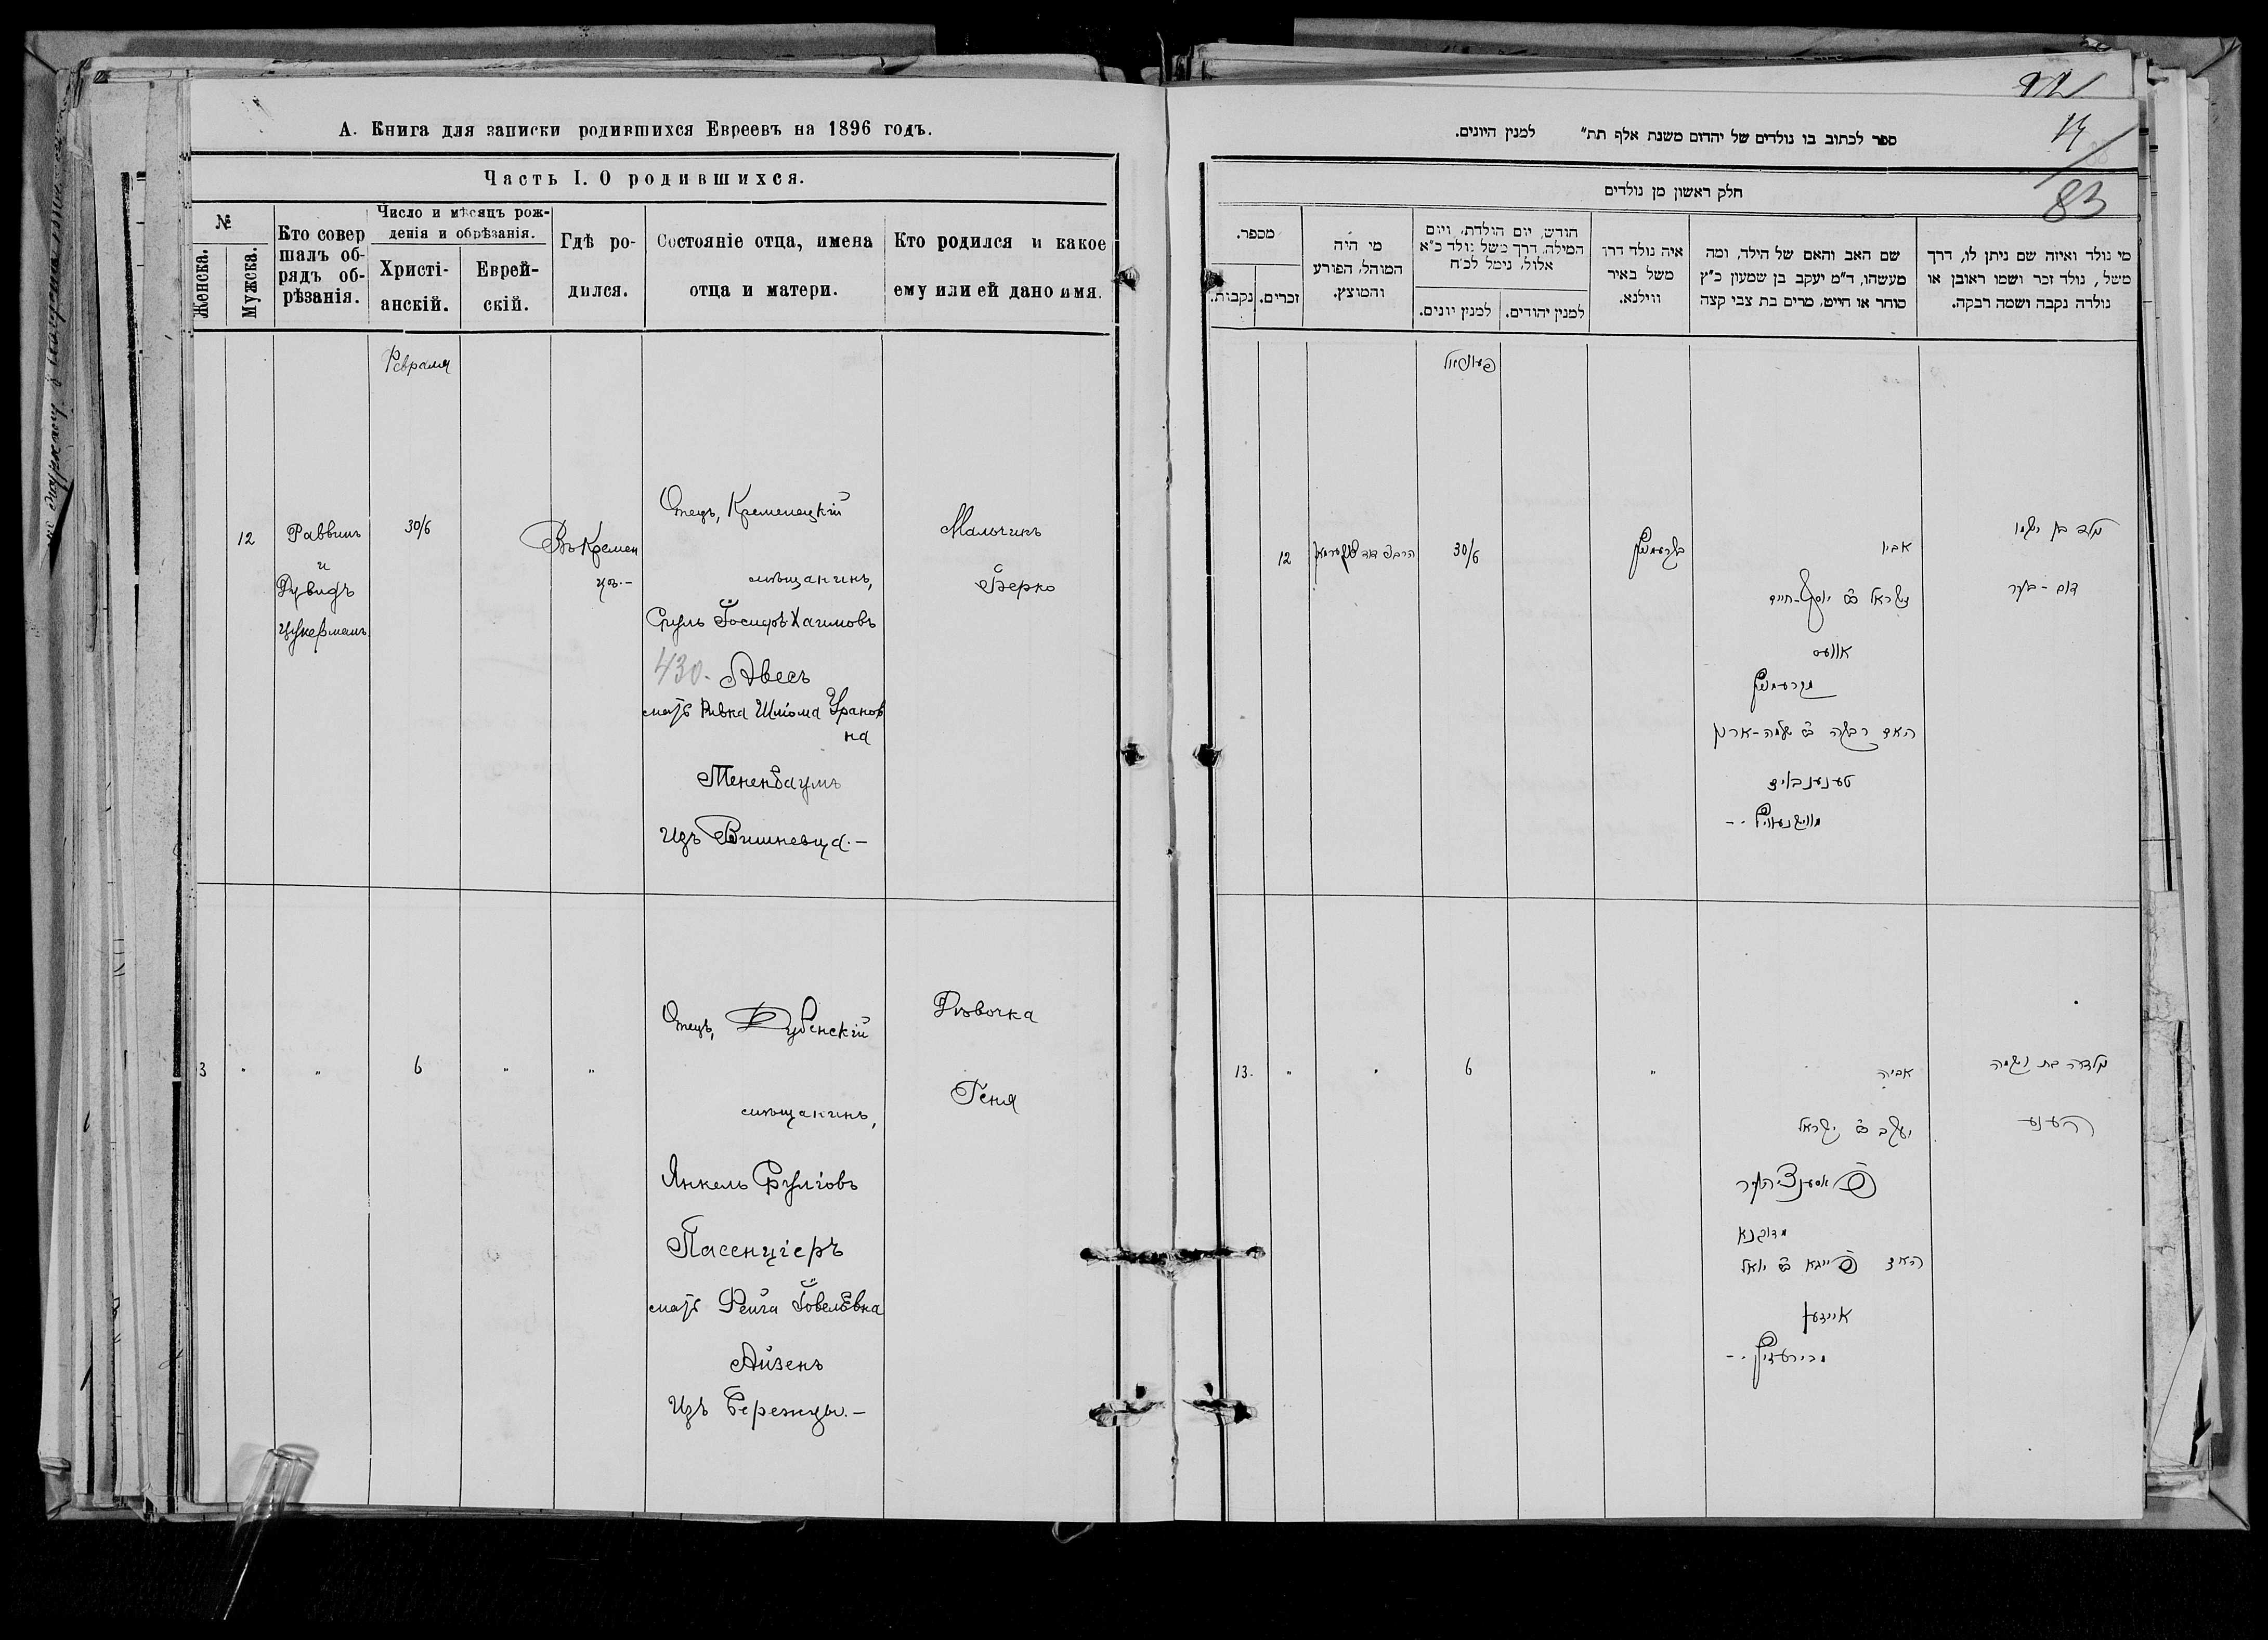 А. Книга для записки родившихся Евреевъ на 1896 годъ.
Часть I. О родившихся.
№
Женска.
Мужска.
Кто совер
шалъ об-
рядъ об-
рѣзанія.
Число и мѣсяцъ рож-
денія и обрѣзанія.
Христі-
анскій.
Еврей-
скій.
Гдѣ ро-
дился.
Состояніе отца, имена
отца и матери.
Кто родился и какое
ему или ей дано имя.
Февраля
12
Раввинъ
и
Дувидъ
Цукерманъ
30/6
Въ Кремен
цѣ.-
Отецъ, Кременецкій
мѣщанинъ,
Сруль Іосифъ Хаимовъ
430. Авесъ
мать Ривка Шліома Уранов
на
Тененбаумъ
Изъ Вишневца.-
Мальчикъ
Берко
3
"
"
6
"
"
Отецъ, Дубенскій
мѣщанинъ,
Янкель Срулiовъ
Пасенціеръ
мать Фейга Іовелевна
Айзенъ
Изъ Бережцы.-
Дѣвочка
Геня
ספר לכתוב בו נולדים של יהדום משנת אלף תת״ למנין היונים.
83
חלק ראשון מן נולדים
מספר.
נקבות.
זכרים.
מי היה
המוהל, הפורע
והמוצץ.
חודש, יום הולדת, ויום
המילה, דרך משל נולד כ״א
אלול, נימל לכ״ח
למנין יונים.
למנין יהודים.
איה נולד דרך
משל באיר
ווילנא.
שם האב והאם של הילד, ומה
מעשהו, ד״מ יעקב בן שמעון כ״ץ
סוחר או חייט, מרים בת צבי קצה
מי נולד ואיזה שם ניתן לו, דרך
משל, נולד זכר ושמו ראובן או
נולדה נקבה ושמה רבקה.
12
30/6
אביו
ישראל ב״ר יוסף-חיים
אוועס
האם רבקה ב״ר שלמה-ארון
טענענבוים
נולד בן ושמו
13.
"
"
6
"
אביה
יעקב ב״ר ישראל
מדובנא
האם פייגא ב״ר יואל
אייזען
נולדה בת ושמה
הענע